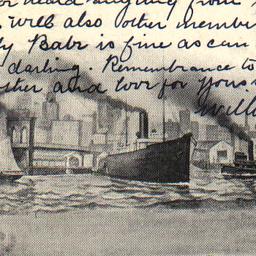 or heard any thing from
well also other member
y Babe is fine as can
darling. Remembrance to
ster and love for Yours
Willi